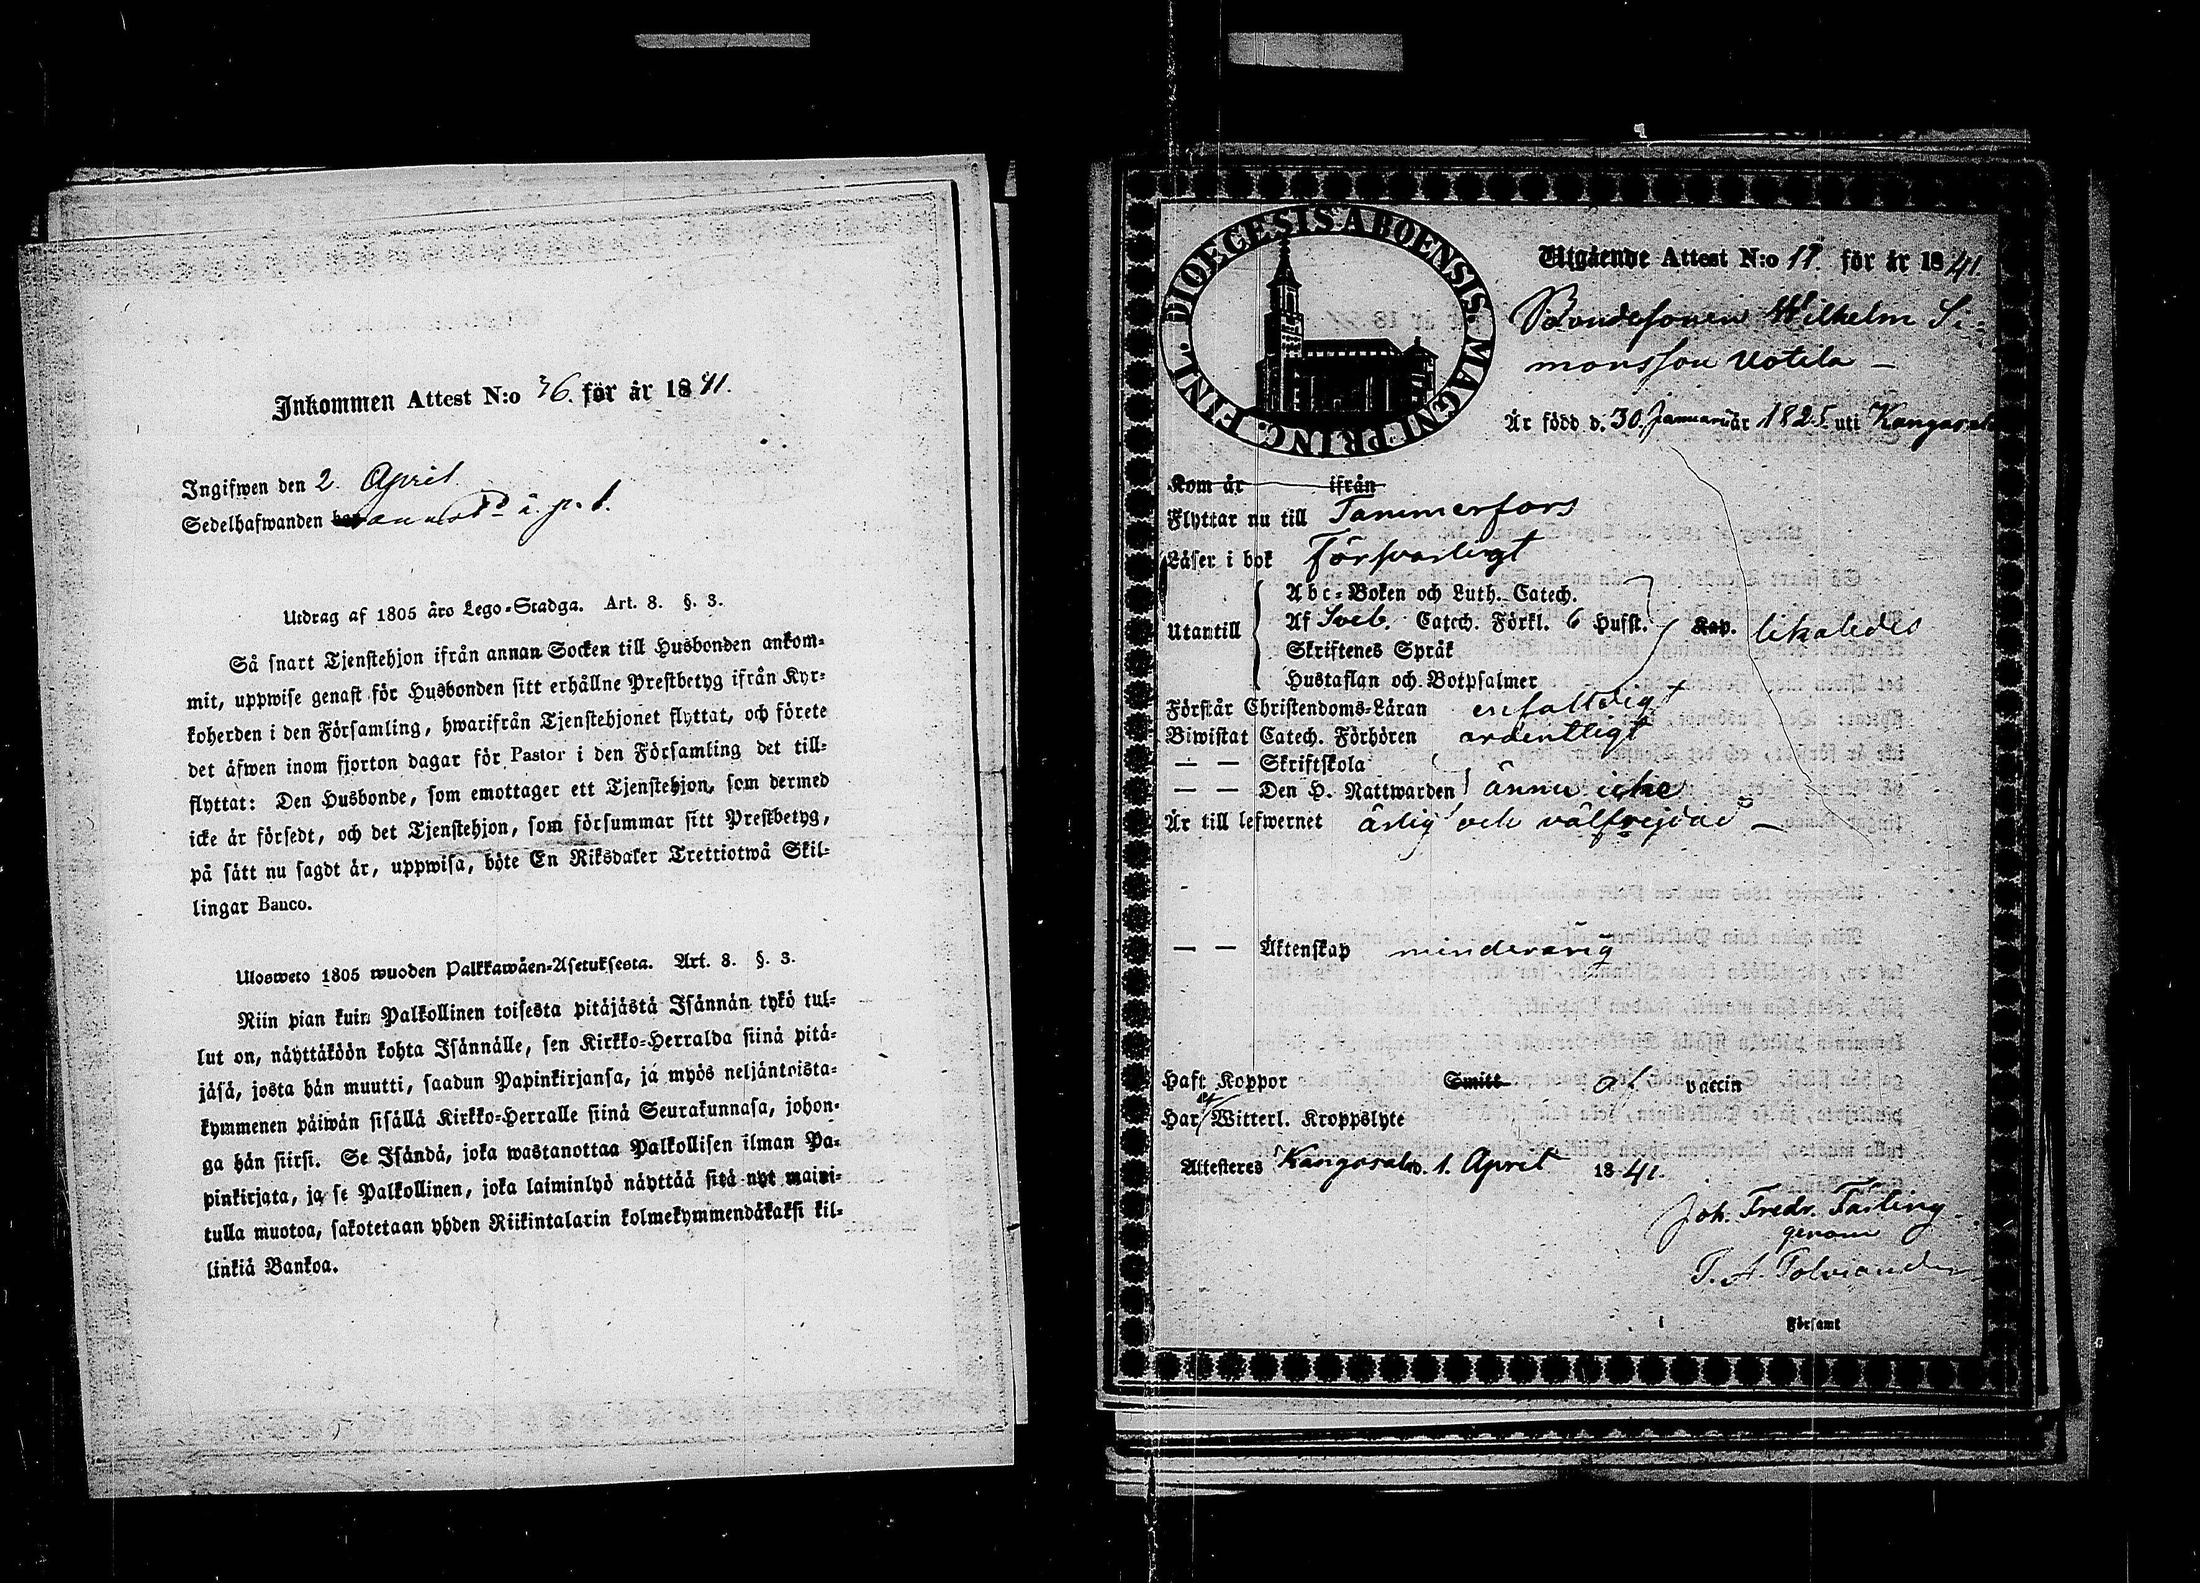 Inkommen Attest N:o 36. för år 1841.
Ingifwen den 2. April
Sedelhafwanden
Utdrag af 1805 års Lego-Stadga. Art. 8. §. 3.
Så snart Tjenstehjon ifrån annan Socken till Husbonden ankom-
mit, uppwise genast för Husbonden sitt erhållne Prestbetyg ifrån Kyr-
koherden i den Församling, hwarifrån Tjenstehjonet flyttat, och förete
det äfwen inom fjorton dagar för Pastor i den Församling det till-
flyttat: Den Husbonde, som emottager ett Tjenstehjon, som dermed
icke är försedt, och det Tjenstehjon, som försummar sitt Prestbetyg,
på sätt nu sagdt är, uppwisa, böte En Riksdaler Trettiotwå Skil-
lingar Banco.
Ulosweto 1805 wuoden Palkkawäen-Asetuksesta. Art. 8. §. 3.
Niin pian kuin Palkollinen toisesta pitäjästä Isännän tykö tul-
lut on, näyttäköön kohta Isännälle, sen Kirkko-Herralda siinä pitä-
jäsä, josta hän muutti, saadun Papinkirjansa, ja myös neljäntoista-
kymmenen päiwän sisällä Kirkko-Herralle siinä Seurakunnasa, johon-
ga hän siirsi. Se Isändä, joka wastanottaa Palkollisen ilman Pa-
pinkirjata, ja se Palkollinen, joka laiminlyö näyttää sitä nyt maini-
tulla muotoa, sakotetaan yhden Riikintalarin kolmekymmendäkaksi kil-
linkiä Bankoa.
DIOECESIS ABOENSIS. MAGNI PRINC. FINL.
Utgående Attest N:o 17. för år 1841.
Bondesonen Wilhelm Si-
monsson Uotila
Är född d. 30. Januari år 1825 uti Kangasala
Kom år ifrån
Flyttar nu till Tammerfors
Läser i bok Försvarligt
Abc-Boken och Luth. Catech.
Utantill Af Sveb. Catech. Förkl. 6 Hufst. Kap. likaledes
Skriftenes Språk
Hustaflan och Botpsalmer
Förstår Christendoms-Läran enfaldigt
Biwistat Catech. Förhören ordentligt
— — Skriftskola
— — Den H. Nattwarden ännu icke
Är till lefwernet ärlig och välfrejdad —
— — Äktenskap minderårig
Haft Koppor Smitt af vaccin
Har ej Witterl. Kroppslyte
Attesteres Kangasala d. 1. April 1841.
Joh. Fredr.
genom
i Församl